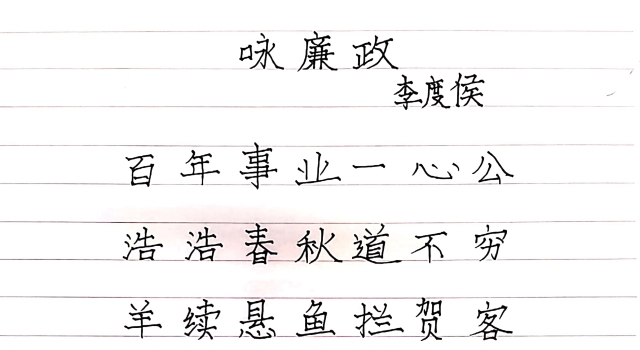 咏廉政
李度侯
百年事业一心公
浩浩春秋道不穷
羊续悬鱼拦贺客